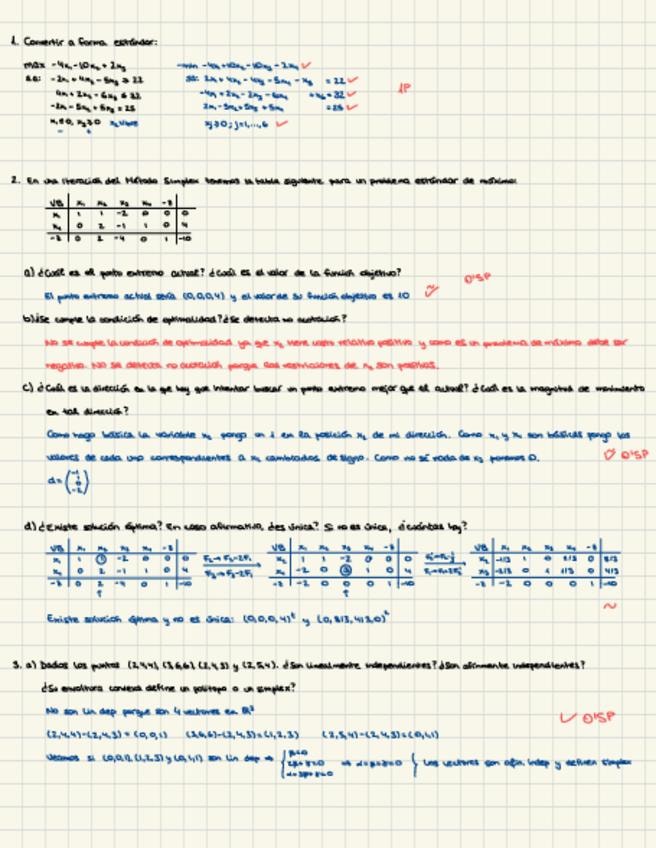 1. Convertir a forma estándar:
max -4x₁-10x₂+2x₃
sa: -2x₁+4x₂-5x₃ ≥ 22
4x₁+2x₂-6x₃ ≤ 32
-2x₁-5x₂+5x₃ = 25
= 22 ✓
= 25 ✓
xj ≥ 0; j=1,...,6 ✓
1P
2. En una iteración del Método Simplex tenemos la tabla siguiente para un problema estándar de máximo:
VB x₁ x₂ x₃ x₄ -z
x₁ 1 1 -2 0 0 0
x₄ 0 2 -1 1 0 4
-z 0 2 -4 0 1 -10
a) ¿Cuál es el punto extremo actual? ¿Cuál es el valor de la función objetivo?
0'5P
El punto extremo actual sería (0,0,0,4) y el valor de su función objetivo es 10
b) ¿Se cumple la condición de optimalidad? ¿Se detecta no acotación?
No se cumple la condición de optimalidad ya que x₂ tiene costo relativo positivo y como es un problema de máximo debe ser
negativo. No se detecta no acotación porque las restricciones de x₂ son positivas.
c) ¿Cuál es la dirección en la que hay que intentar buscar un punto extremo mejor que el actual? ¿Cuál es la magnitud de movimiento
en tal dirección?
Como hago básica la variable x₂ pongo un 1 en la posición x₂ de mi dirección. Como x₁ y x₄ son básicas pongo los
valores de cada uno correspondientes a x₂ cambiados de signo. Como no sé nada de x₃ ponemos 0.
0'5P
d= (-1 1 0 -2)
d) ¿Existe solución óptima? En caso afirmativo, ¿es única? Si no es única, ¿cuántas hay?
VB x₁ x₂ x₃ x₄ -z
Existe solución óptima y no es única: (0,0,0,4)ᵗ y (0,8/3,4/3,0)ᵗ
3. a) Dados los puntos (2,4,4), (3,6,6), (2,4,3) y (2,5,4). ¿Son linealmente independientes? ¿Son afínmente independientes?
¿Su envoltura convexa define un politopo o un simplex?
No son lin dep porque son 4 vectores en ℝ³
✓ 0'5P
(2,4,4)-(2,4,3)=(0,0,1) (3,6,6)-(2,4,3)=(1,2,3) (2,5,4)-(2,4,3)=(0,1,1)
Veamos si (0,0,1),(1,2,3) y (0,1,1) son lin dep ⇒ ⇒ α=β=γ=0 } Los vectores son afín. indep y definen simplex